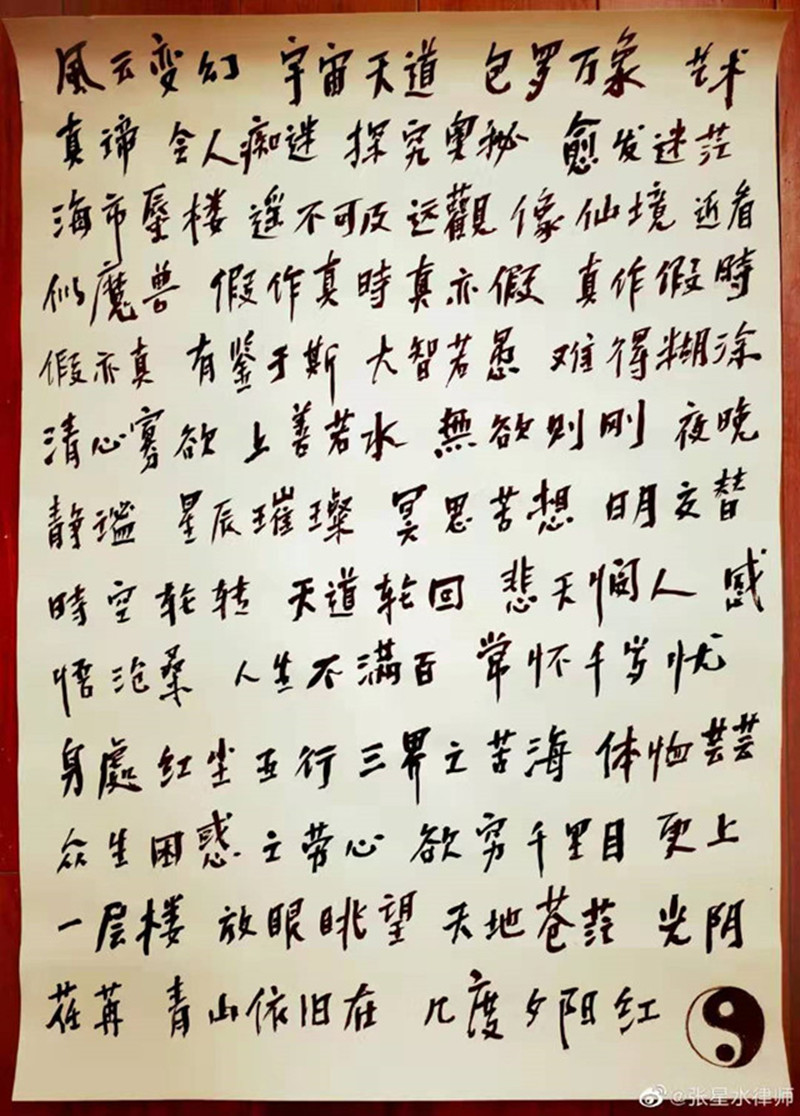 風云变幻 宇宙天道 包罗万象 艺术
真谛 令人痴迷 探究奥秘 愈发迷茫
海市蜃楼 遥不可及 远觀像仙境 近看
似魔兽 假作真時真亦假 真作假時
假亦真 有鉴于斯 大智若愚 难得糊涂
清心寡欲 上善若水 無欲则刚 夜晚
静谧 星辰璀璨 冥思苦想 明月交替
時空轮转 天道轮回 悲天悯人 感
悟沧桑 人生不满百 常怀千岁忧
身處红尘五行三界之苦海 体恤芸芸
众生困惑之劳心 欲穷千里目 更上
一层楼 放眼眺望 天地苍茫 光阴
荏苒 青山依旧在 几度夕阳红
@张星水律师